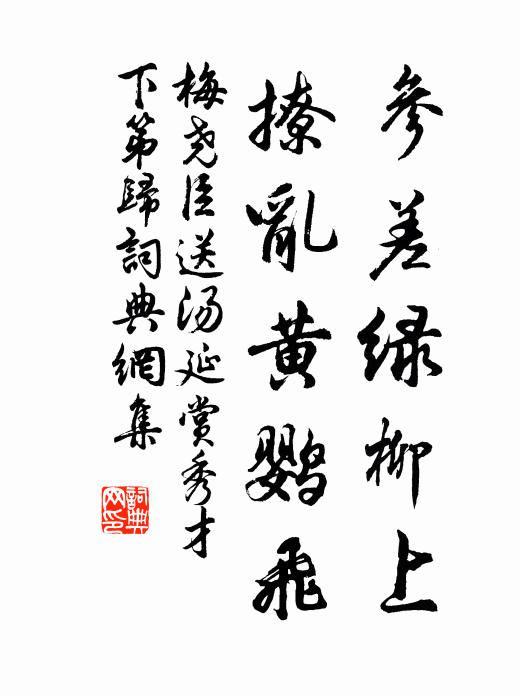 參差绿柳上
撩亂黄鹦飛
梅尧臣送汤延赏秀才
下第歸詞典網集
詞典网印